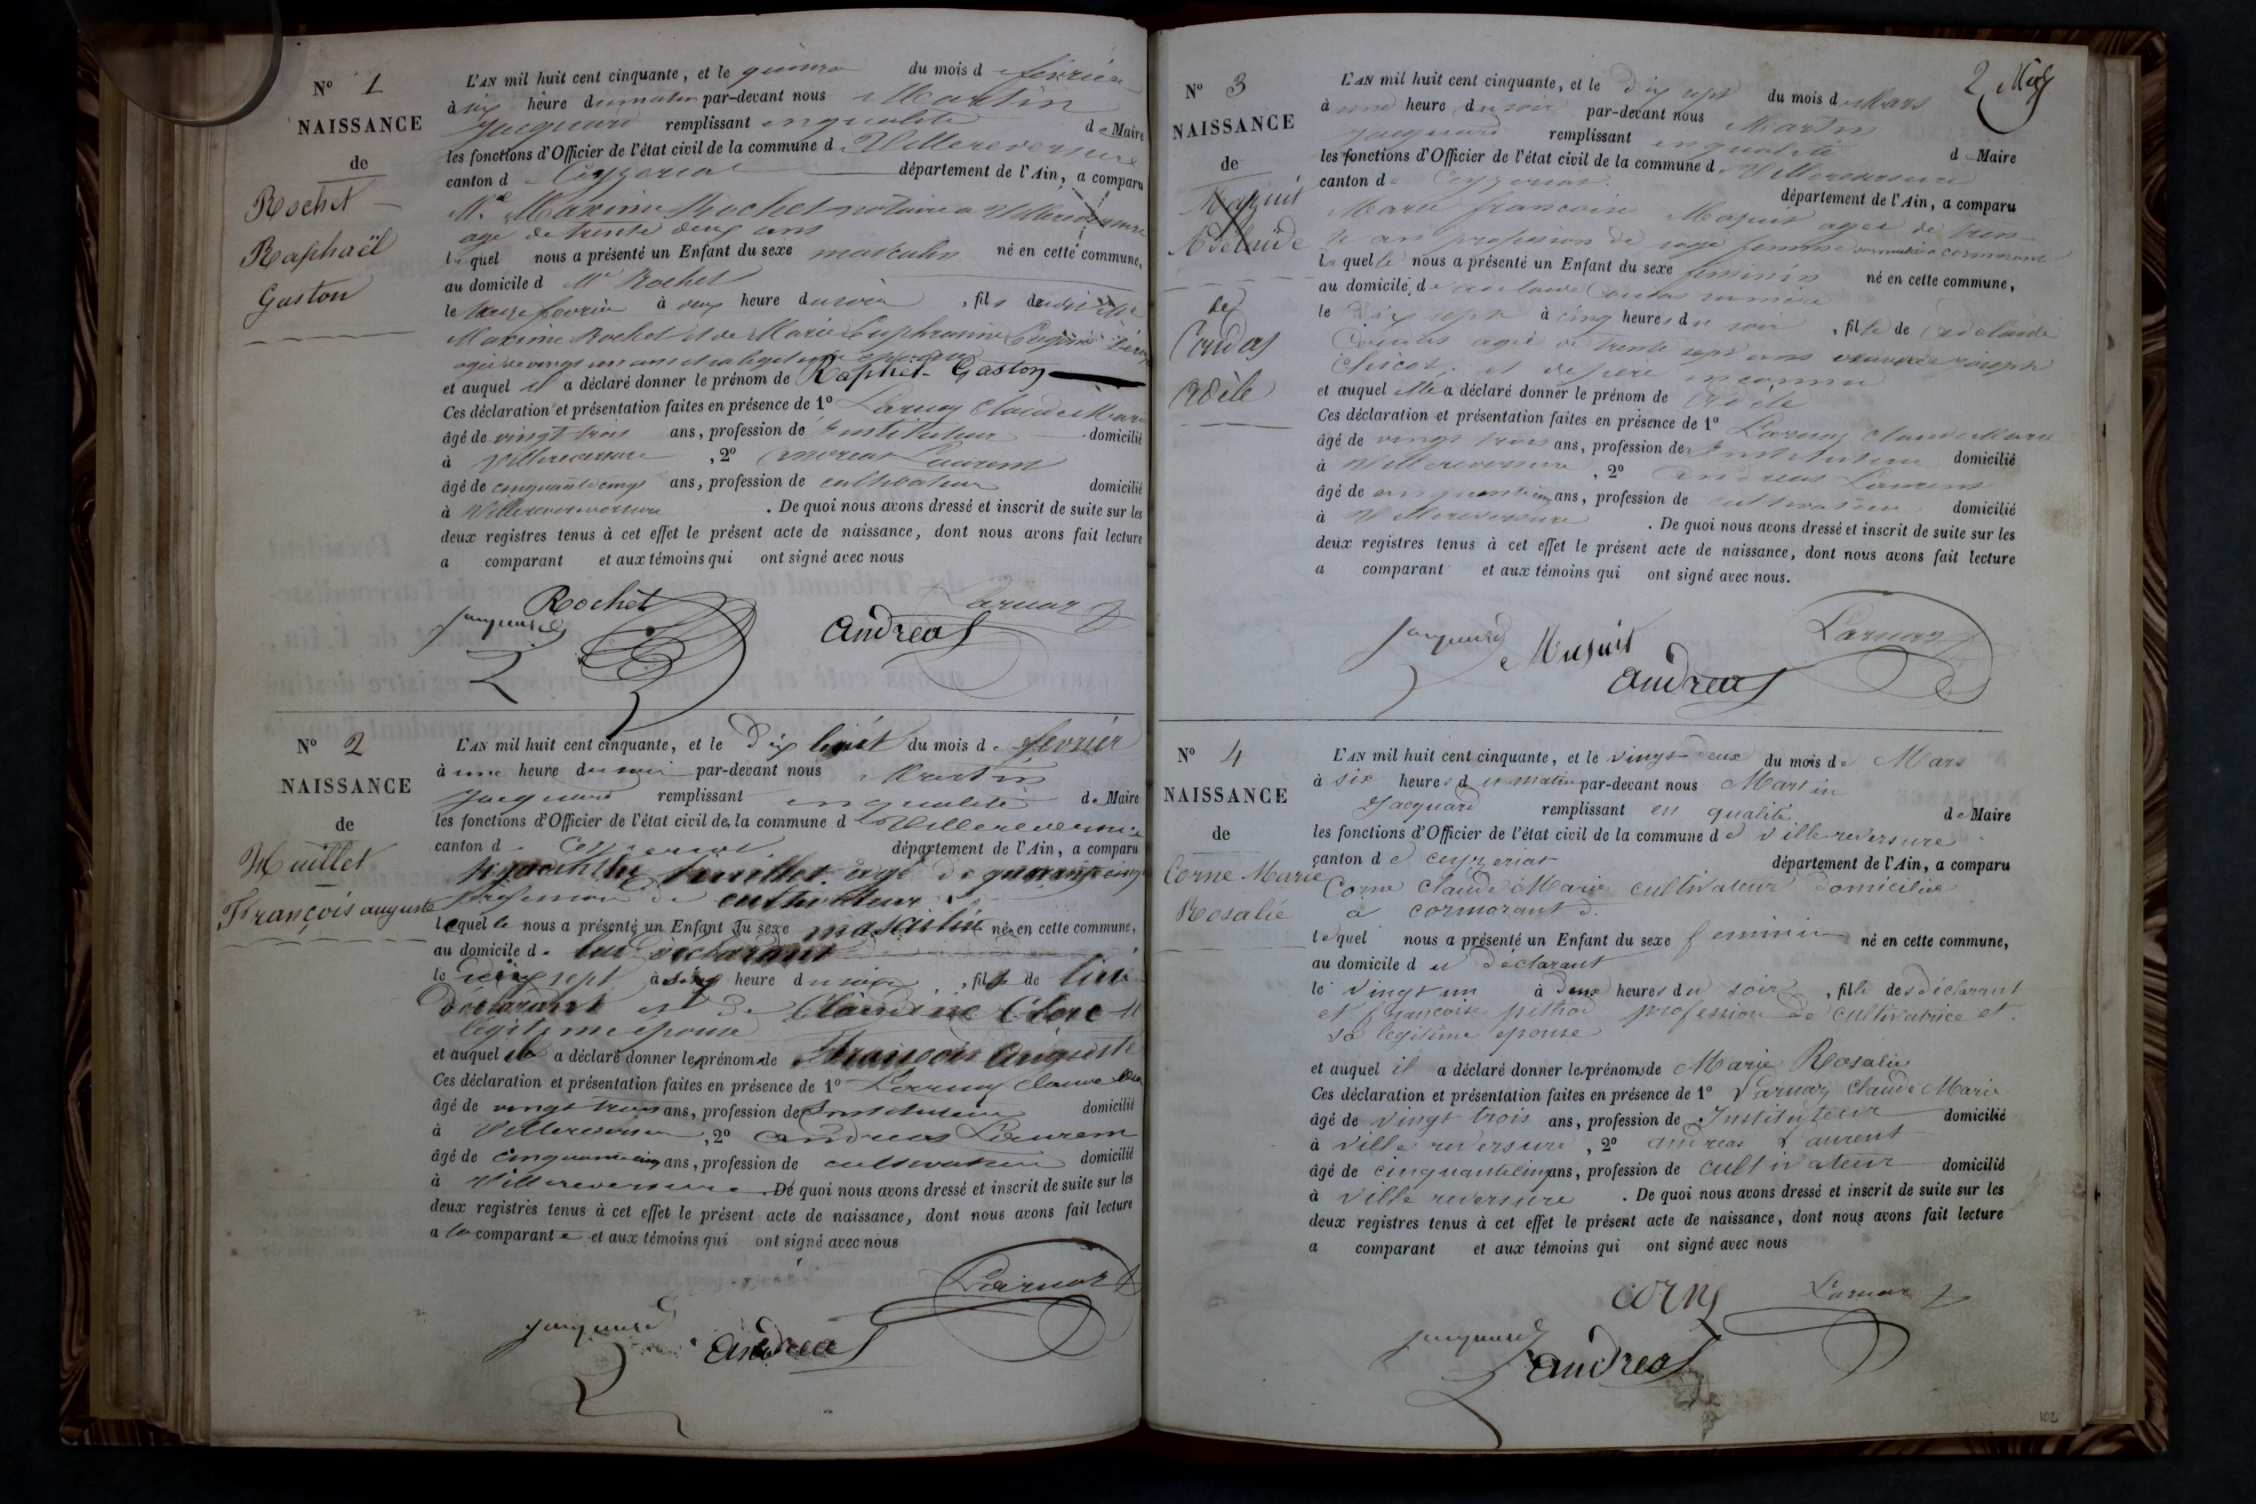 N° 1
NAISSANCE
de
Rochet
Raphaël
Gaston
L'AN mil huit cent cinquante, et le quinze du mois d février
à six heure du matin par-devant nous Martin
Jacquard remplissant en qualité de Maire
les fonctions d'Officier de l'état civil de la commune d Villereversure
canton d Ceyzeriat département de l'Ain, a comparu
Maxime Rochet notaire a Villereversure
agé de trente deux ans
lequel nous a présenté un Enfant du sexe masculin né en cette commune,
au domicile d Mr Rochet
le treize fevrier à deux heure du soir, fils de
Maxime Rochet et de Marie Euphrasine
et auquel il a déclaré donner le prénom de Raphel-Gaston
Ces déclaration et présentation faites en présence de 1° Larnay Claude Marie
âgé de vingt trois ans, profession de Instituteur domicilié
à Villereversure, 2° Andreas Laurent
âgé de cinquante cinq ans, profession de cultivateur domicilié
à Villereversure. De quoi nous avons dressé et inscrit de suite sur les
deux registres tenus à cet effet le présent acte de naissance, dont nous avons fait lecture
a comparant et aux témoins qui ont signé avec nous
Rochet
Jacquard
Andreas
N° 2
NAISSANCE
de
Huillet
François auguste
L'AN mil huit cent cinquante, et le Dix huit du mois de fevrier
à une heure du soir par-devant nous Martin
Jacquard remplissant en qualité de Maire
les fonctions d'Officier de l'état civil de la commune d Villereversure
canton d Ceyzeriat département de l'Ain, a comparu
agé de quarante cinq
profession de cultivateur
lequel le nous a présenté un Enfant du sexe masculin né en cette commune,
au domicile de lui déclarant
le dix sept à heure du soir, fils de lui
déclarant et de Claudine Clerc
légitime epouse
et auquel a déclaré donner les prénoms de François Auguste
Ces déclaration et présentation faites en présence de 1° Claude
âgé de vingt trois ans, profession de Instituteur domicilié
à Villereversure, 2° Andreas Laurent
âgé de cinquante cinq ans, profession de cultivateur domicilié
à Villereversure. De quoi nous avons dressé et inscrit de suite sur les
deux registres tenus à cet effet le présent acte de naissance, dont nous avons fait lecture
a la comparante et aux témoins qui ont signé avec nous
Jacquard
Andreas
2
N° 3
NAISSANCE
de
Adelaide
Coudas
Adèle
L'AN mil huit cent cinquante, et le Dix sept du mois de Mars
à heure du soir par-devant nous Martin
Jacquard remplissant en qualité de Maire
les fonctions d'Officier de l'état civil de la commune de Villereversure
canton de Ceyzeriat département de l'Ain, a comparu
Marie francoise agée de tren
te ans profession de sage femme
laquelle nous a présenté un Enfant du sexe feminin né en cette commune,
au domicile de adelaide Coudas sa mère
le Dix sept à cinq heures du soir, fille de Adelaide
Coudas agée de trente sept ans
et de père inconnu
et auquel elle a déclaré donner le prénom de Adele
Ces déclaration et présentation faites en présence de 1° Larnay Claude Marie
âgé de vingt trois ans, profession de Instituteur domicilié
à Villereversure, 2° andreas Laurent
âgé de cinquante cinq ans, profession de cultivateur domicilié
à Villereversure. De quoi nous avons dressé et inscrit de suite sur les
deux registres tenus à cet effet le présent acte de naissance, dont nous avons fait lecture
a comparant et aux témoins qui ont signé avec nous.
Jacquard
Andreas
N° 4
NAISSANCE
de
Corne Marie
Rosalie
L'AN mil huit cent cinquante, et le vingt deux du mois de Mars
à six heures du matin par-devant nous Martin
Jacquard remplissant en qualité de Maire
les fonctions d'Officier de l'état civil de la commune de villereversure
canton de ceyzeriat département de l'Ain, a comparu
Corne Claude Marie cultivateur domicilié
à cormorant
lequel nous a présenté un Enfant du sexe feminin né en cette commune,
au domicile du déclarant
le vingt un à deux heures du soir, fille de déclarant
et françoise pithod profession de cultivatrice et
sa legitime epouse
et auquel il a déclaré donner les prénoms de Marie Rosalie
Ces déclaration et présentation faites en présence de 1° Larnay Claude Marie
âgé de vingt trois ans, profession de Instituteur domicilié
à villereversure, 2° andreas Laurent
âgé de cinquante cinq ans, profession de cultivateur domicilié
à villereversure. De quoi nous avons dressé et inscrit de suite sur les
deux registres tenus à cet effet le présent acte de naissance, dont nous avons fait lecture
a comparant et aux témoins qui ont signé avec nous
corne
Jacquard
Andreas
102